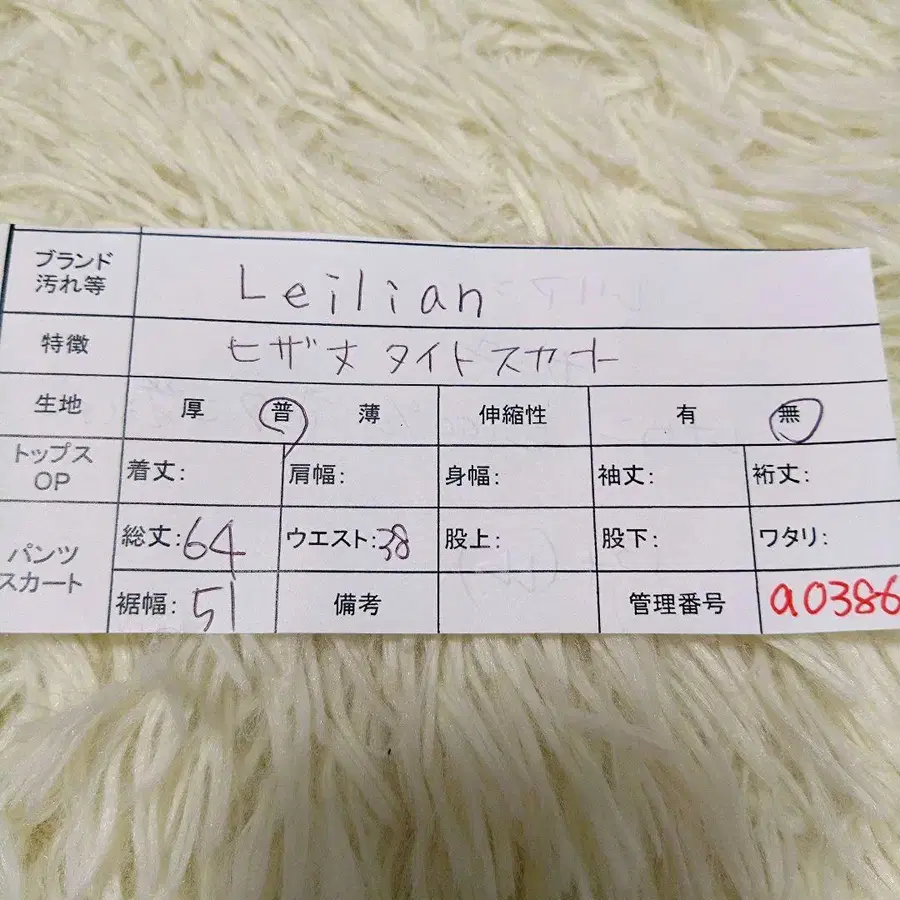 ブランド
汚れ等
Leilian
特徴
ヒザ丈 タイトスカート
生地 厚 普 薄 伸縮性 有 無
トップス
OP
着丈: 肩幅: 身幅: 袖丈: 裄丈:
パンツ
スカート
総丈:64 ウエスト:38 股上: 股下: ワタリ:
裾幅: 51 備考 管理番号 a0386